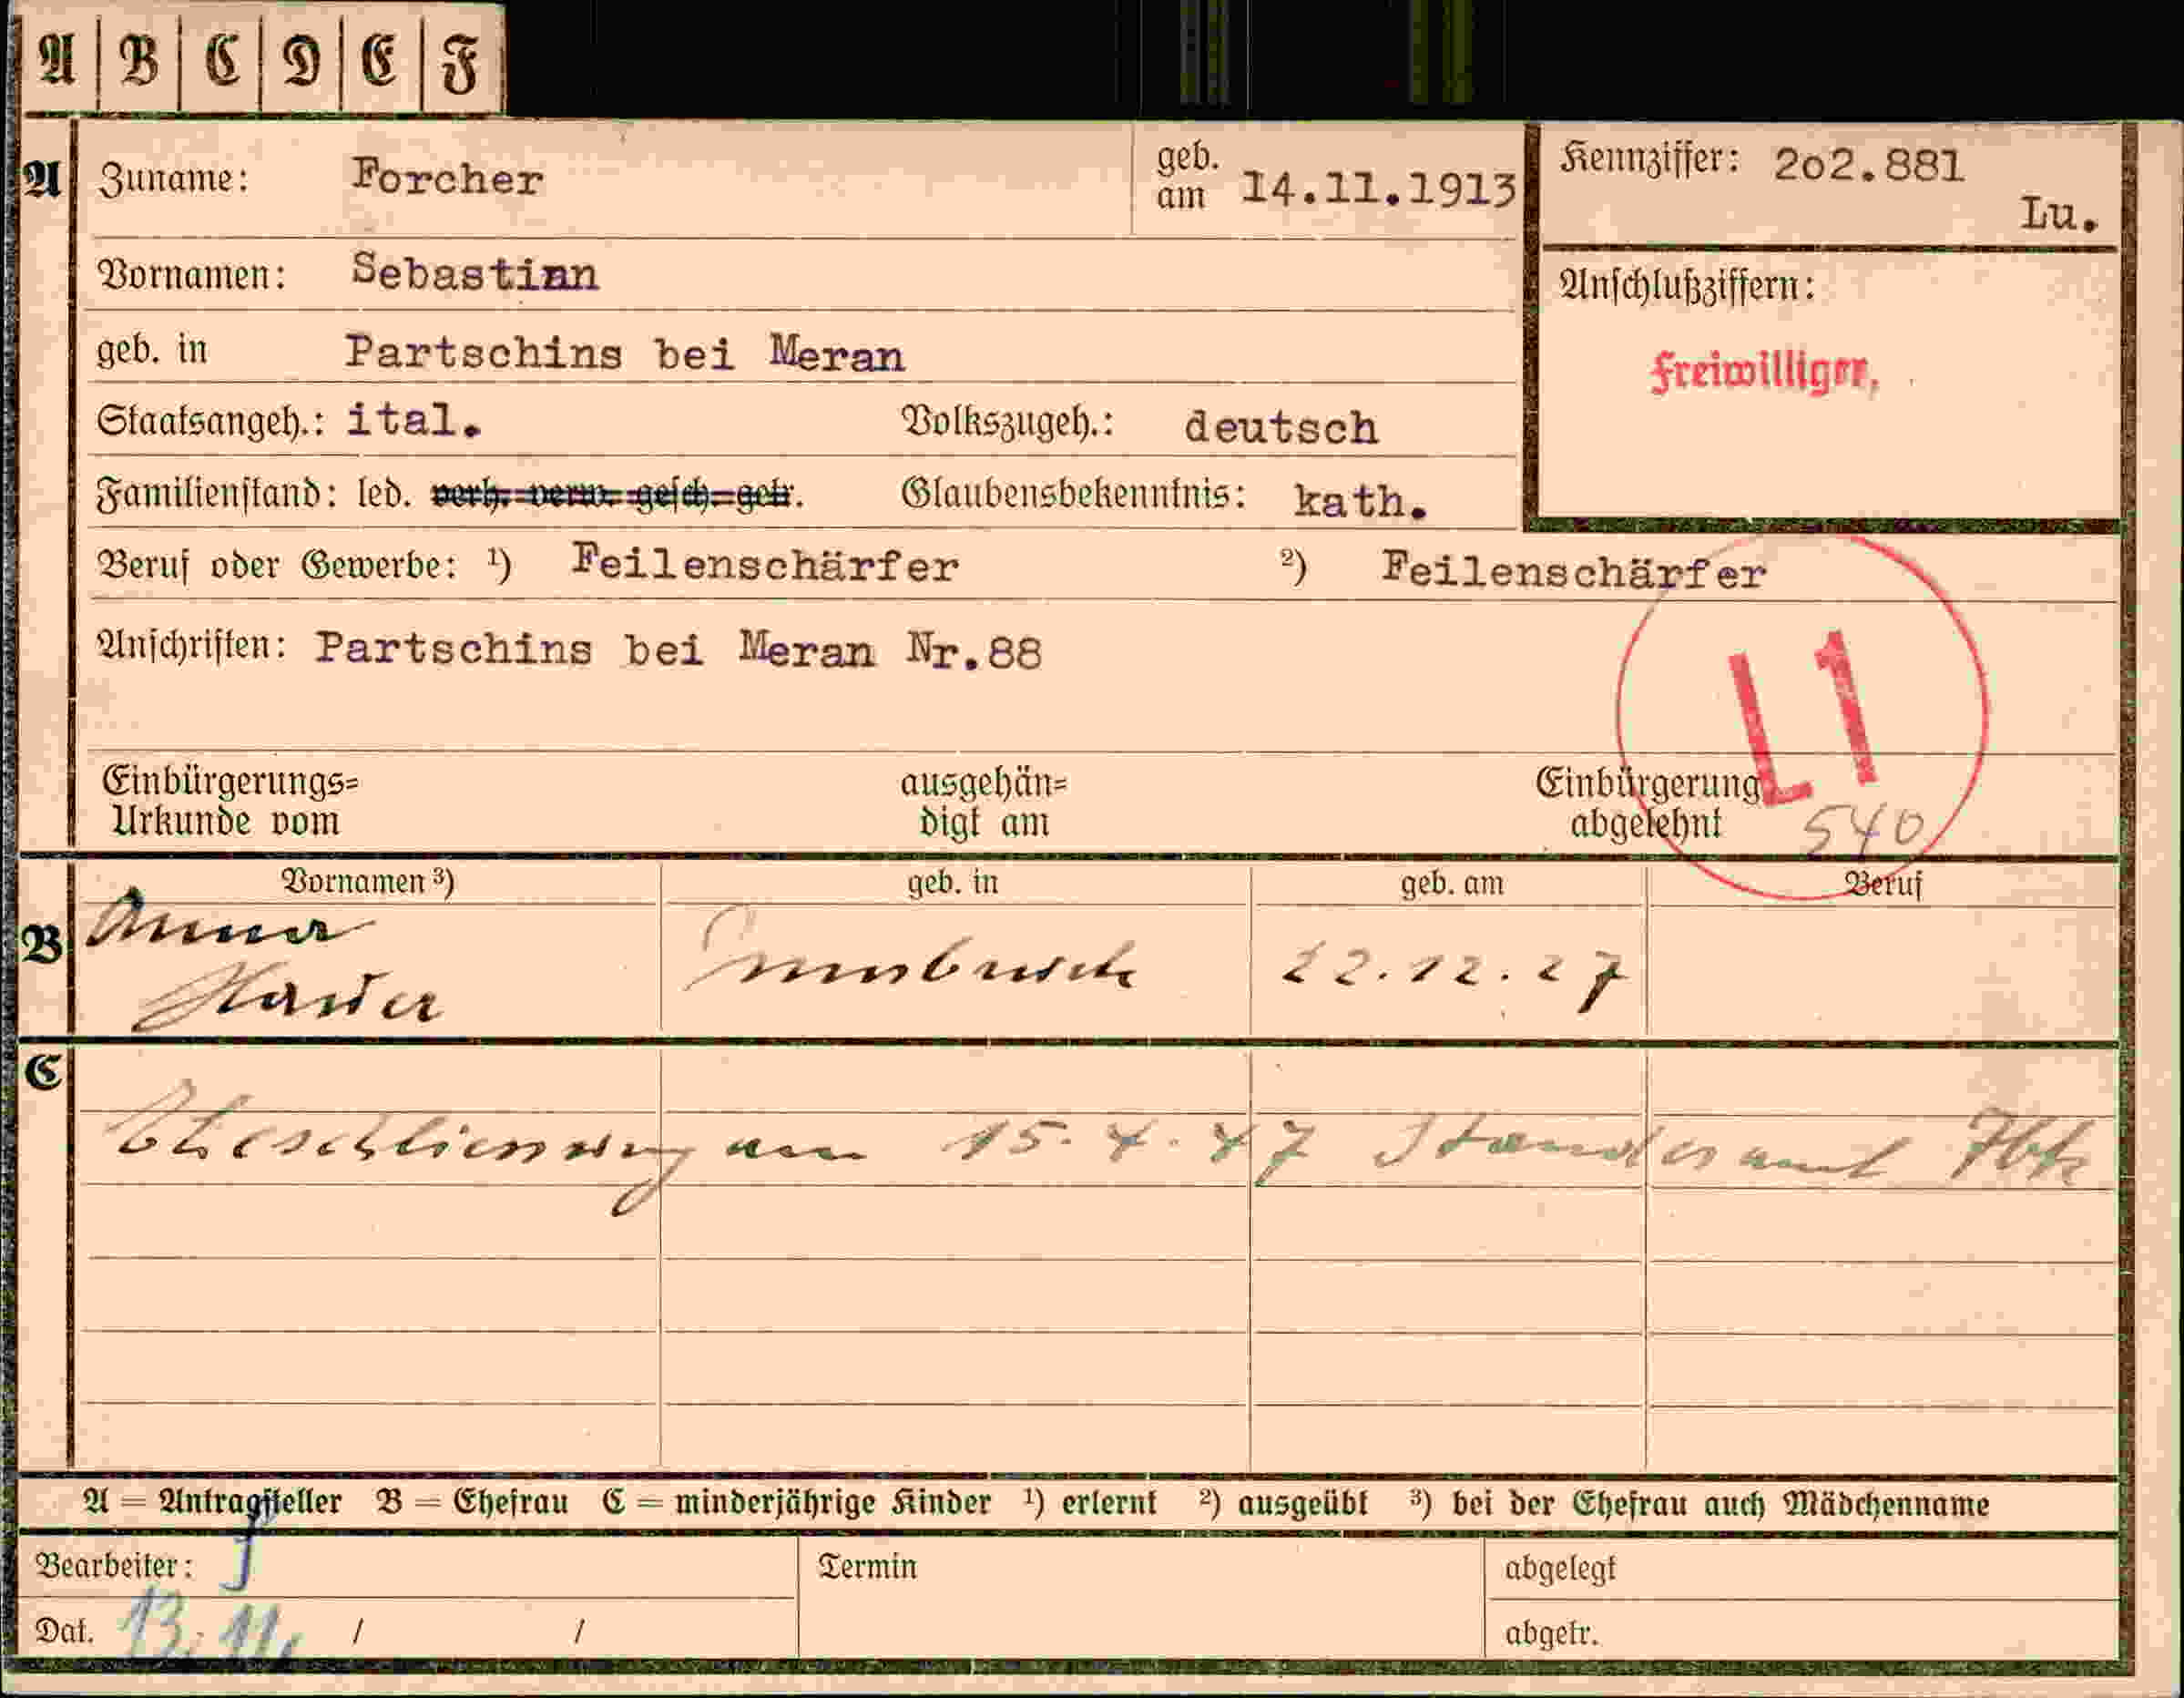 A B C D E F
A Zuname: Forcher geb. am 14.11.1913 Kennziffer: 202.881 Lu.
Vornamen: Sebastian
Anschlußziffern:
geb. in Partschins bei Meran
Freiwilliger,
Staatsangeh.: ital. Volkszugeh.: deutsch
Familienstand: led. verh. verw. gesch. getr. Glaubensbekenntnis: kath.
Beruf oder Gewerbe: ¹) Feilenschärfer ²) Feilenschärfer
Anschriften: Partschins bei Meran Nr.88
L1
Einbürgerungs= ausgehän= Einbürgerung
Urkunde vom digt am abgelehnt 540
Vornamen ³) geb. in geb. am Beruf
B Anna Innsbruck 22.12.27
C
Eheschliessung am 15.4.47 Standesamt
A = Antragsteller B = Ehefrau C = minderjährige Kinder ¹) erlernt ²) ausgeübt ³) bei der Ehefrau auch Mädchenname
Bearbeiter: Termin abgelegt
Dat. 13.11. / / abgetr.